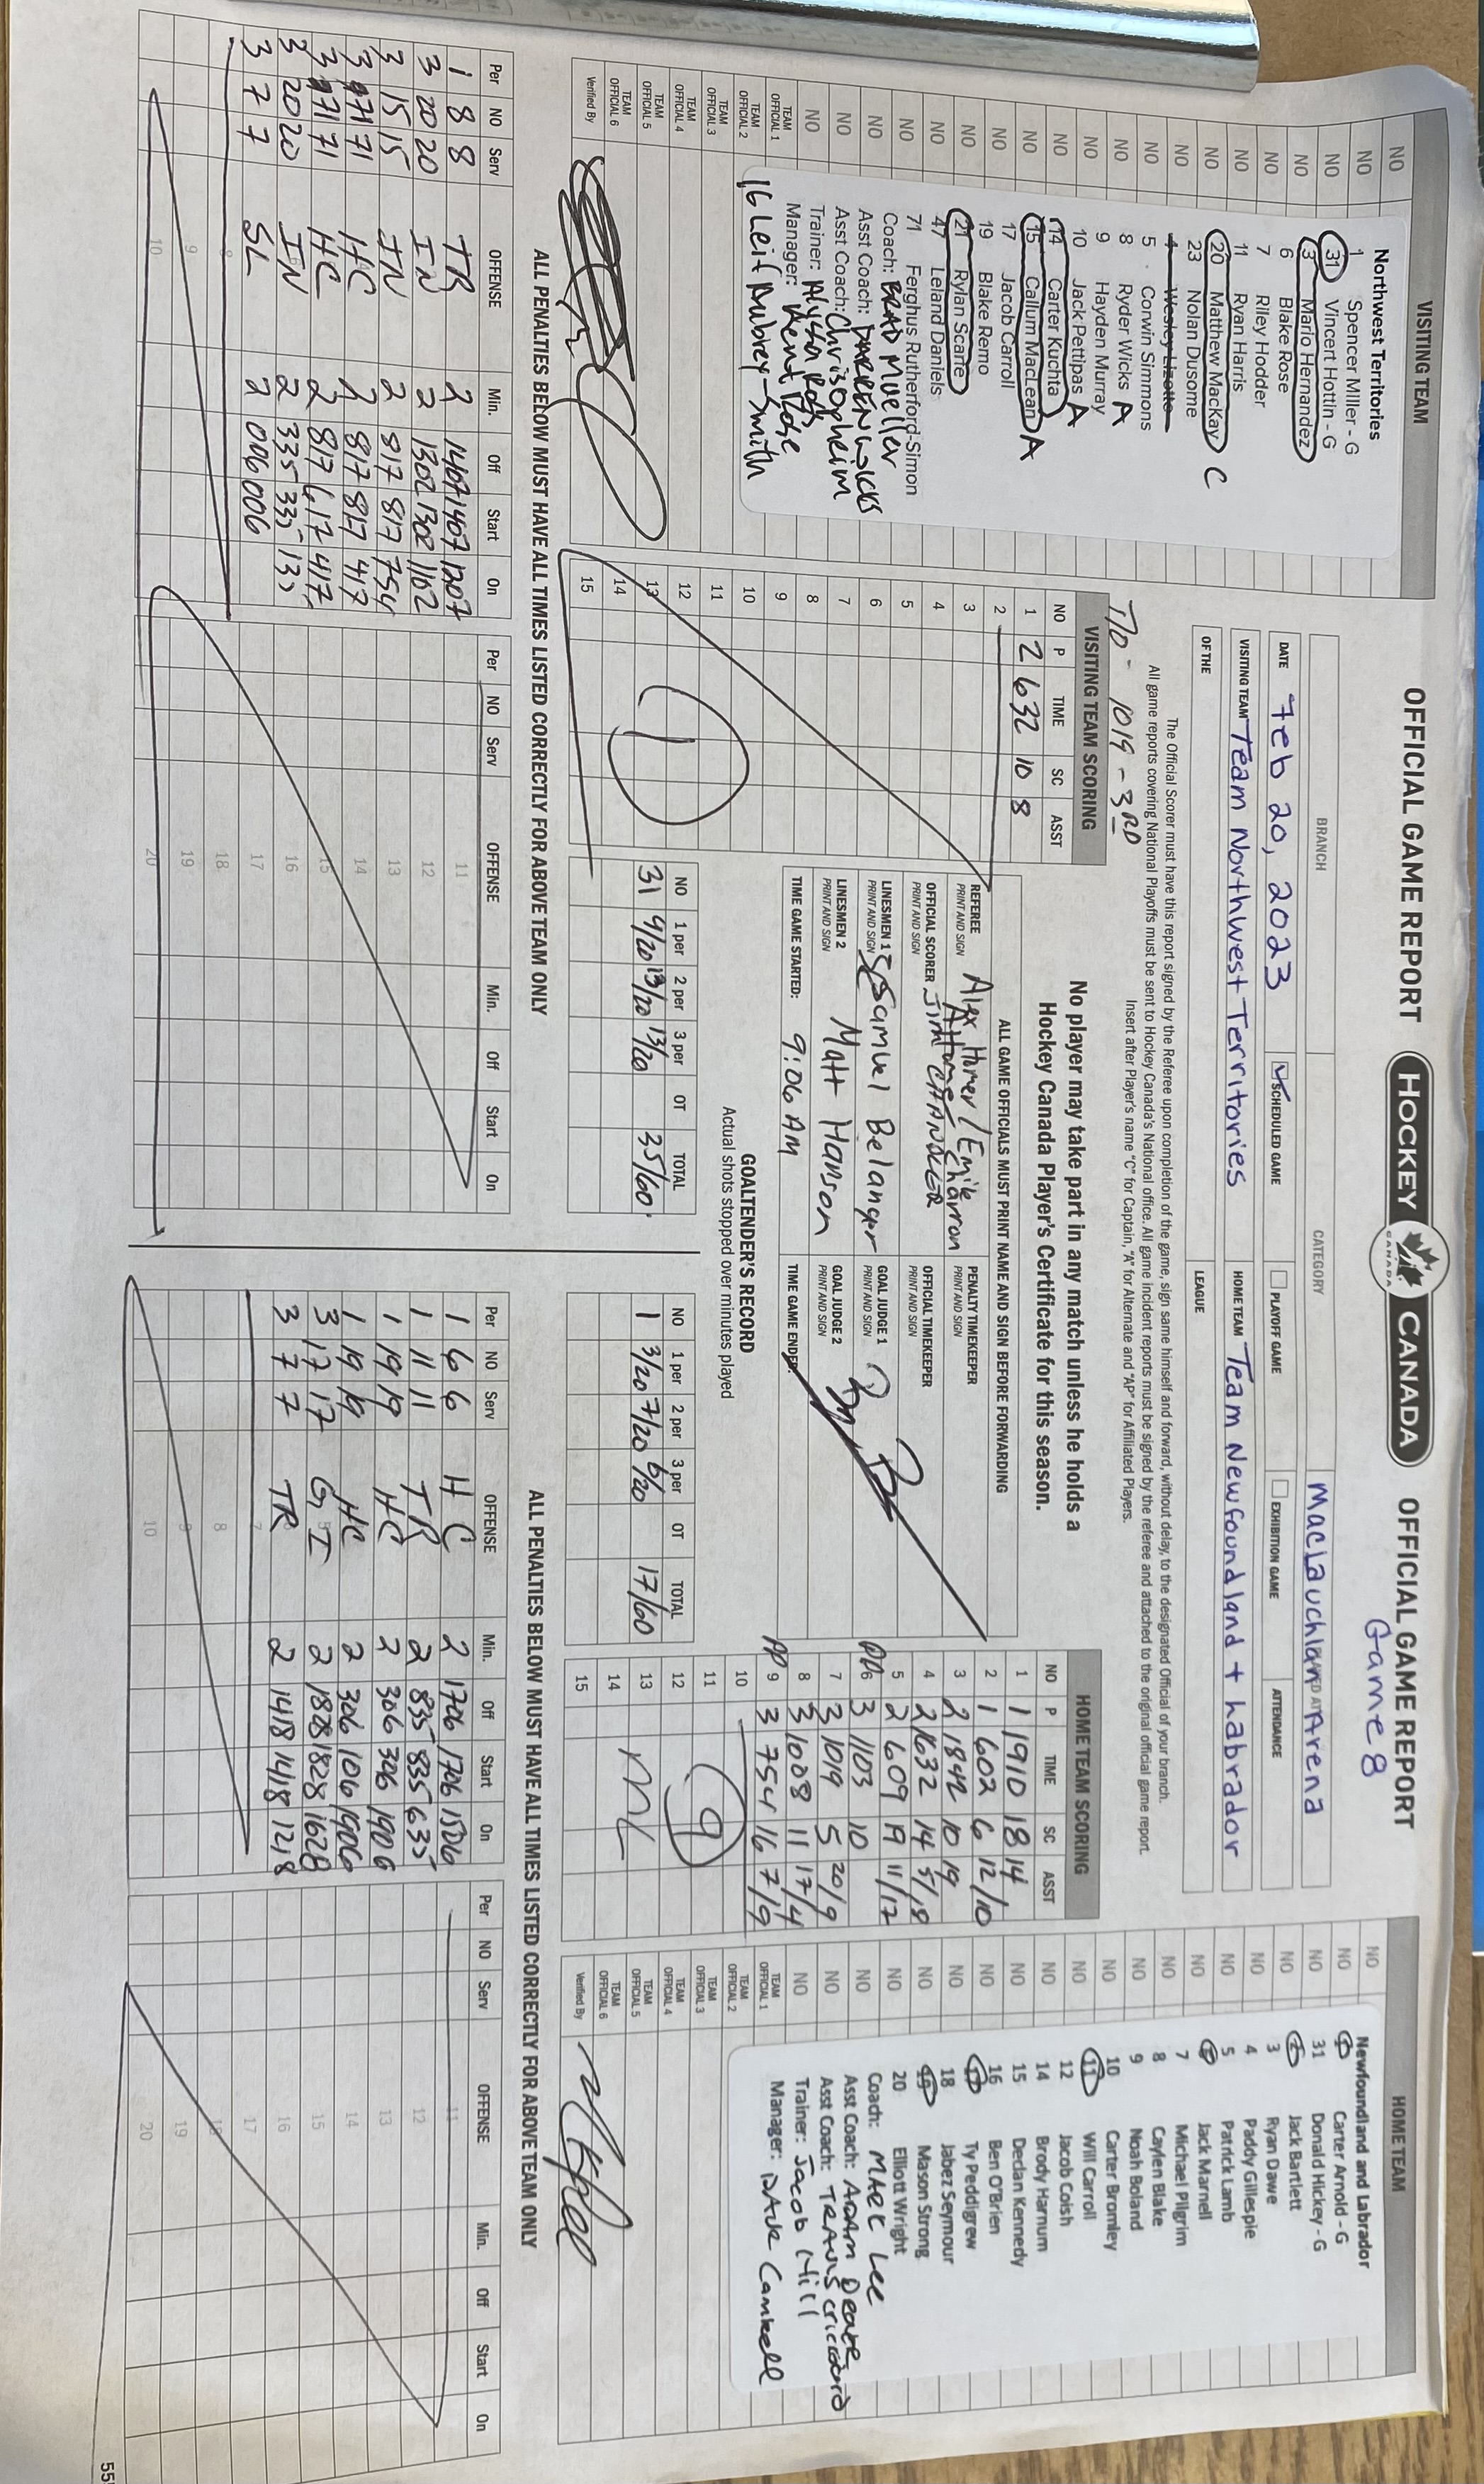 OFFICIAL GAME REPORT
HOCKEY CANADA
CANADA
OFFICIAL GAME REPORT
Game 8
BRANCH
CATEGORY
MacLauchlan Arena
DATE Feb 20, 2023
SCHEDULED GAME
PLAYOFF GAME
EXHIBITION GAME
ATTENDANCE
VISITING TEAM Team Northwest Territories
HOME TEAM Team Newfoundland + Labrador
OF THE
LEAGUE
The Official Scorer must have this report signed by the Referee upon completion of the game, sign same himself and forward, without delay, to the designated Official of your branch.
All game reports covering National Playoffs must be sent to Hockey Canada's National office. All game incident reports must be signed by the referee and attached to the original official game report.
Insert after Player's name "C" for Captain, "A" for Alternate and "AP" for Affiliated Players.
T/O - 1019 - 3RD
VISITING TEAM
Northwest Territories
1 Spencer Miller - G
31 Vincert Hottin - G
3 Mario Hernandez
6 Blake Rose
7 Riley Hodder
11 Ryan Harris
20 Matthew MacKay C
23 Nolan Dusome
4 Wesley Lizotte
5 Corwin Simmons
8 Ryder Wicks A
9 Hayden Murray
10 Jack Pettipas A
14 Carter Kuchta
15 Callum MacLean A
17 Jacob Carroll
19 Blake Remo
21 Rylan Scarfe
47 Leland Daniels
71 Ferghus Rutherford-Simon
Coach: BRAD Mueller
Asst Coach: DARREN Wicks
Asst Coach:
Trainer: Alyssa Ross
Manager: Kent Rose
16 Leif Aubrey-Smith
TEAM OFFICIAL 1
TEAM OFFICIAL 2
TEAM OFFICIAL 3
TEAM OFFICIAL 4
TEAM OFFICIAL 5
TEAM OFFICIAL 6
Verified By
VISITING TEAM SCORING
NO P TIME SC ASST
1 2 632 10 8
2
3
4
5
6
7
8
9
10
11
12
13
14
15
1
No player may take part in any match unless he holds a
Hockey Canada Player's Certificate for this season.
ALL GAME OFFICIALS MUST PRINT NAME AND SIGN BEFORE FORWARDING
REFEREE PRINT AND SIGN Alex Homer / Emik Charron
PENALTY TIMEKEEPER PRINT AND SIGN
OFFICIAL SCORER PRINT AND SIGN Jim CHANDLER
OFFICIAL TIMEKEEPER PRINT AND SIGN
LINESMEN 1 PRINT AND SIGN Samuel Belanger
GOAL JUDGE 1 PRINT AND SIGN
LINESMEN 2 PRINT AND SIGN Matt Hanson
GOAL JUDGE 2 PRINT AND SIGN
TIME GAME STARTED: 9:06 AM
TIME GAME ENDED:
GOALTENDER'S RECORD
Actual shots stopped over minutes played
NO 1 per 2 per 3 per OT TOTAL
31 9/20 13/20 13/20 35/60
NO 1 per 2 per 3 per OT TOTAL
1 3/20 7/20 6/20 17/60
HOME TEAM SCORING
NO P TIME SC ASST
1 1 1910 18 14
2 1 602 6 12/10
3 2 1842 10 19
4 2 1632 14 5/18
5 2 609 19 11/17
PP 6 3 1103 10
7 3 1019 5 20/9
8 3 1008 11 17/4
PP 9 3 754 16 7/9
10
11
12
13
14
15
9
HOME TEAM
Newfoundland and Labrador
1 Carter Arnold - G
31 Donald Hickey - G
2 Jack Bartlett
3 Ryan Dawe
4 Paddy Gillespie
5 Patrick Lamb
6 Jack Marnell
7 Michael Pilgrim
8 Caylen Blake
9 Noah Boland
10 Carter Bromley
11 Will Carroll
12 Jacob Coish
14 Brody Harnum
15 Declan Kennedy
16 Ben O'Brien
17 Ty Peddigrew
18 Jabez Seymour
19 Mason Strong
20 Elliott Wright
Coach: MARC Lee
Asst Coach: ADAM Deare
Asst Coach: TRAVIS
Trainer: Jacob Hill
Manager: DAVE Cantwell
TEAM OFFICIAL 1
TEAM OFFICIAL 2
TEAM OFFICIAL 3
TEAM OFFICIAL 4
TEAM OFFICIAL 5
TEAM OFFICIAL 6
Verified By
ALL PENALTIES BELOW MUST HAVE ALL TIMES LISTED CORRECTLY FOR ABOVE TEAM ONLY
Per NO Serv OFFENSE Min. Off Start On
1 8 8 TR 2 1407 1407 1207
3 20 20 IN 2 1302 1302 1102
3 15 15 IN 2 817 817 754
3 71 71 HC 2 817 817 417
3 71 71 HC 2 817 617 417
3 20 20 IN 2 335 335 135
3 7 7 SL 2 006 006
8
9
10
Per NO Serv OFFENSE Min. Off Start On
11
12
13
14
15
16
17
18
19
20
ALL PENALTIES BELOW MUST HAVE ALL TIMES LISTED CORRECTLY FOR ABOVE TEAM ONLY
Per NO Serv OFFENSE Min. Off Start On
1 6 6 HC 2 1706 1706 1506
1 11 11 TR 2 835 835 635
1 19 19 HC 2 306 306 1906
1 19 19 HC 2 306 106 1906
3 17 17 GI 2 1828 1828 1628
3 7 7 TR 2 1418 1418 1218
7
8
9
10
Per NO Serv OFFENSE Min. Off Start On
11
12
13
14
15
16
17
18
19
20